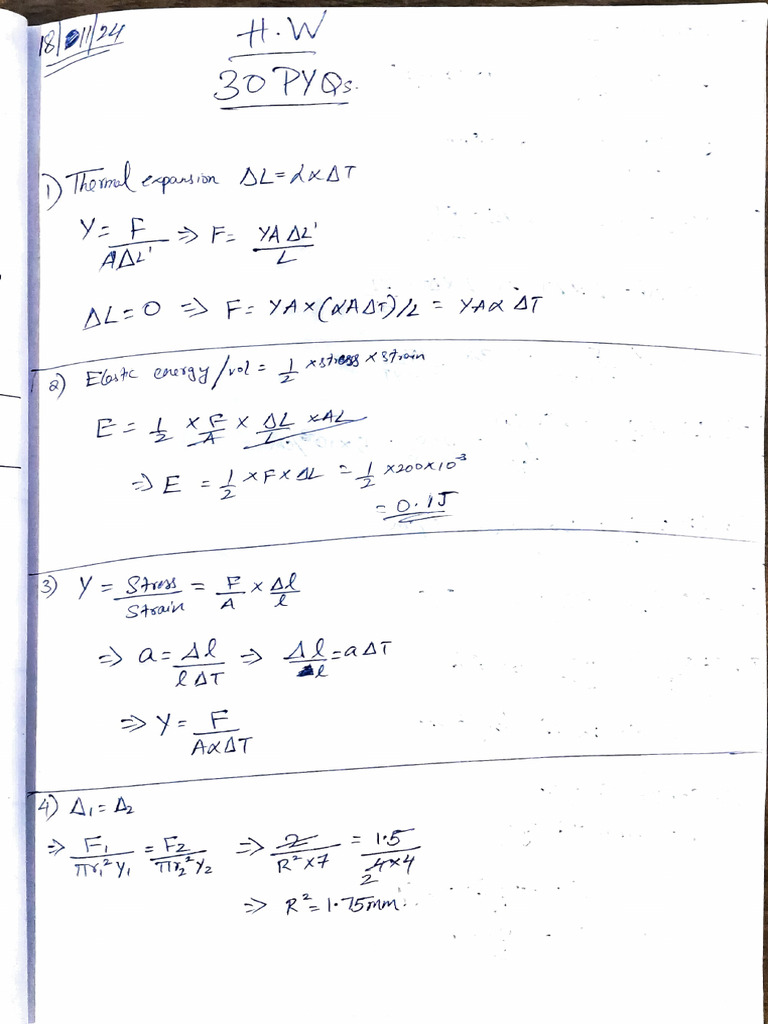 18/11/24
H.W
30 PYQs.
1) Thermal expansion ΔL = L∝ΔT
Y = F/AΔL' ⇒ F = YAΔL'/L
ΔL = 0 ⇒ F = YA×(αAΔT)/L = YAαΔT
2) Elastic energy/vol = 1/2 × stress × strain
E = 1/2 × F/A × ΔL/L × AL
⇒ E = 1/2 × F × ΔL = 1/2 × 200×10⁻³
= 0.1J
3) Y = Stress/Strain = F/A × Δl/l
⇒ a = Δl/lΔT ⇒ Δl/l = aΔT
⇒ Y = F/AαΔT
4) Δ₁ = Δ₂
⇒ F₁/πr₁²Y₁ = F₂/πr₂²Y₂ ⇒ 2/R²×7 = 1.5/4×4
2
⇒ R² = 1.75mm.